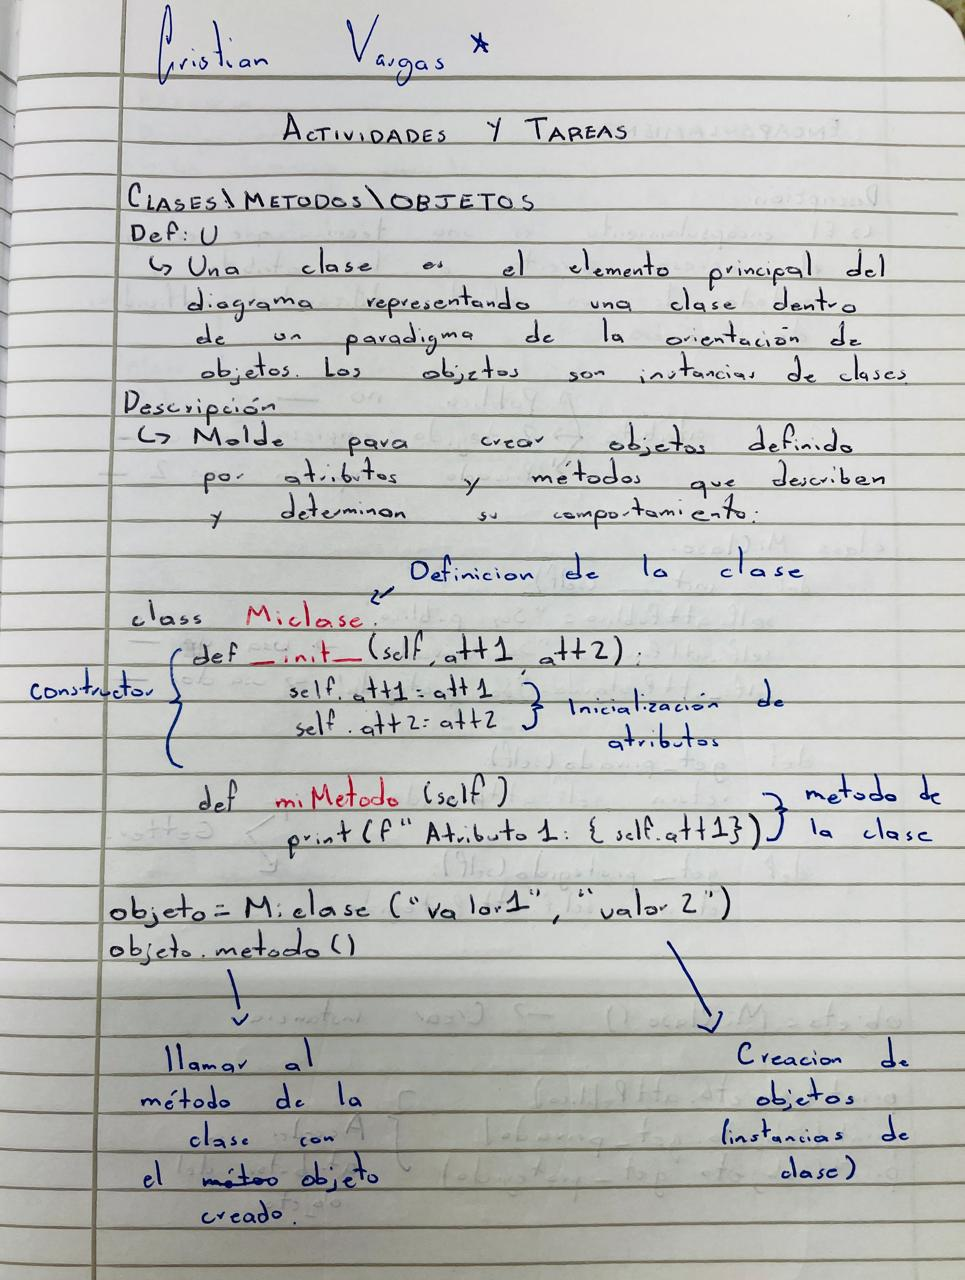 Cristian Vargas *
ACTIVIDADES Y TAREAS
CLASES\METODOS\OBJETOS
Def: U
↳ Una clase es el elemento principal del
diagrama representando una clase dentro
de un paradigma de la orientación de
objetos. Los objetos son instancias de clases
Descripción
↳ Molde para crear objetos definido
por atributos y métodos que describen
y determinan su comportamiento:
Definicion de la clase
class Miclase:
def _init_(self, att1, att2):
constructor
self.att1=att1
self.att2=att2
Inicialización de
atributos
def miMetodo (self)
print(f"Atributo 1: {self.att1})
metodo de
la clase
objeto=Miclase ("valor1", "valor 2")
objeto.metodo()
llamar al
método de la
clase con
el objeto
creado.
Creacion de
objetos
(instancias de
clase)